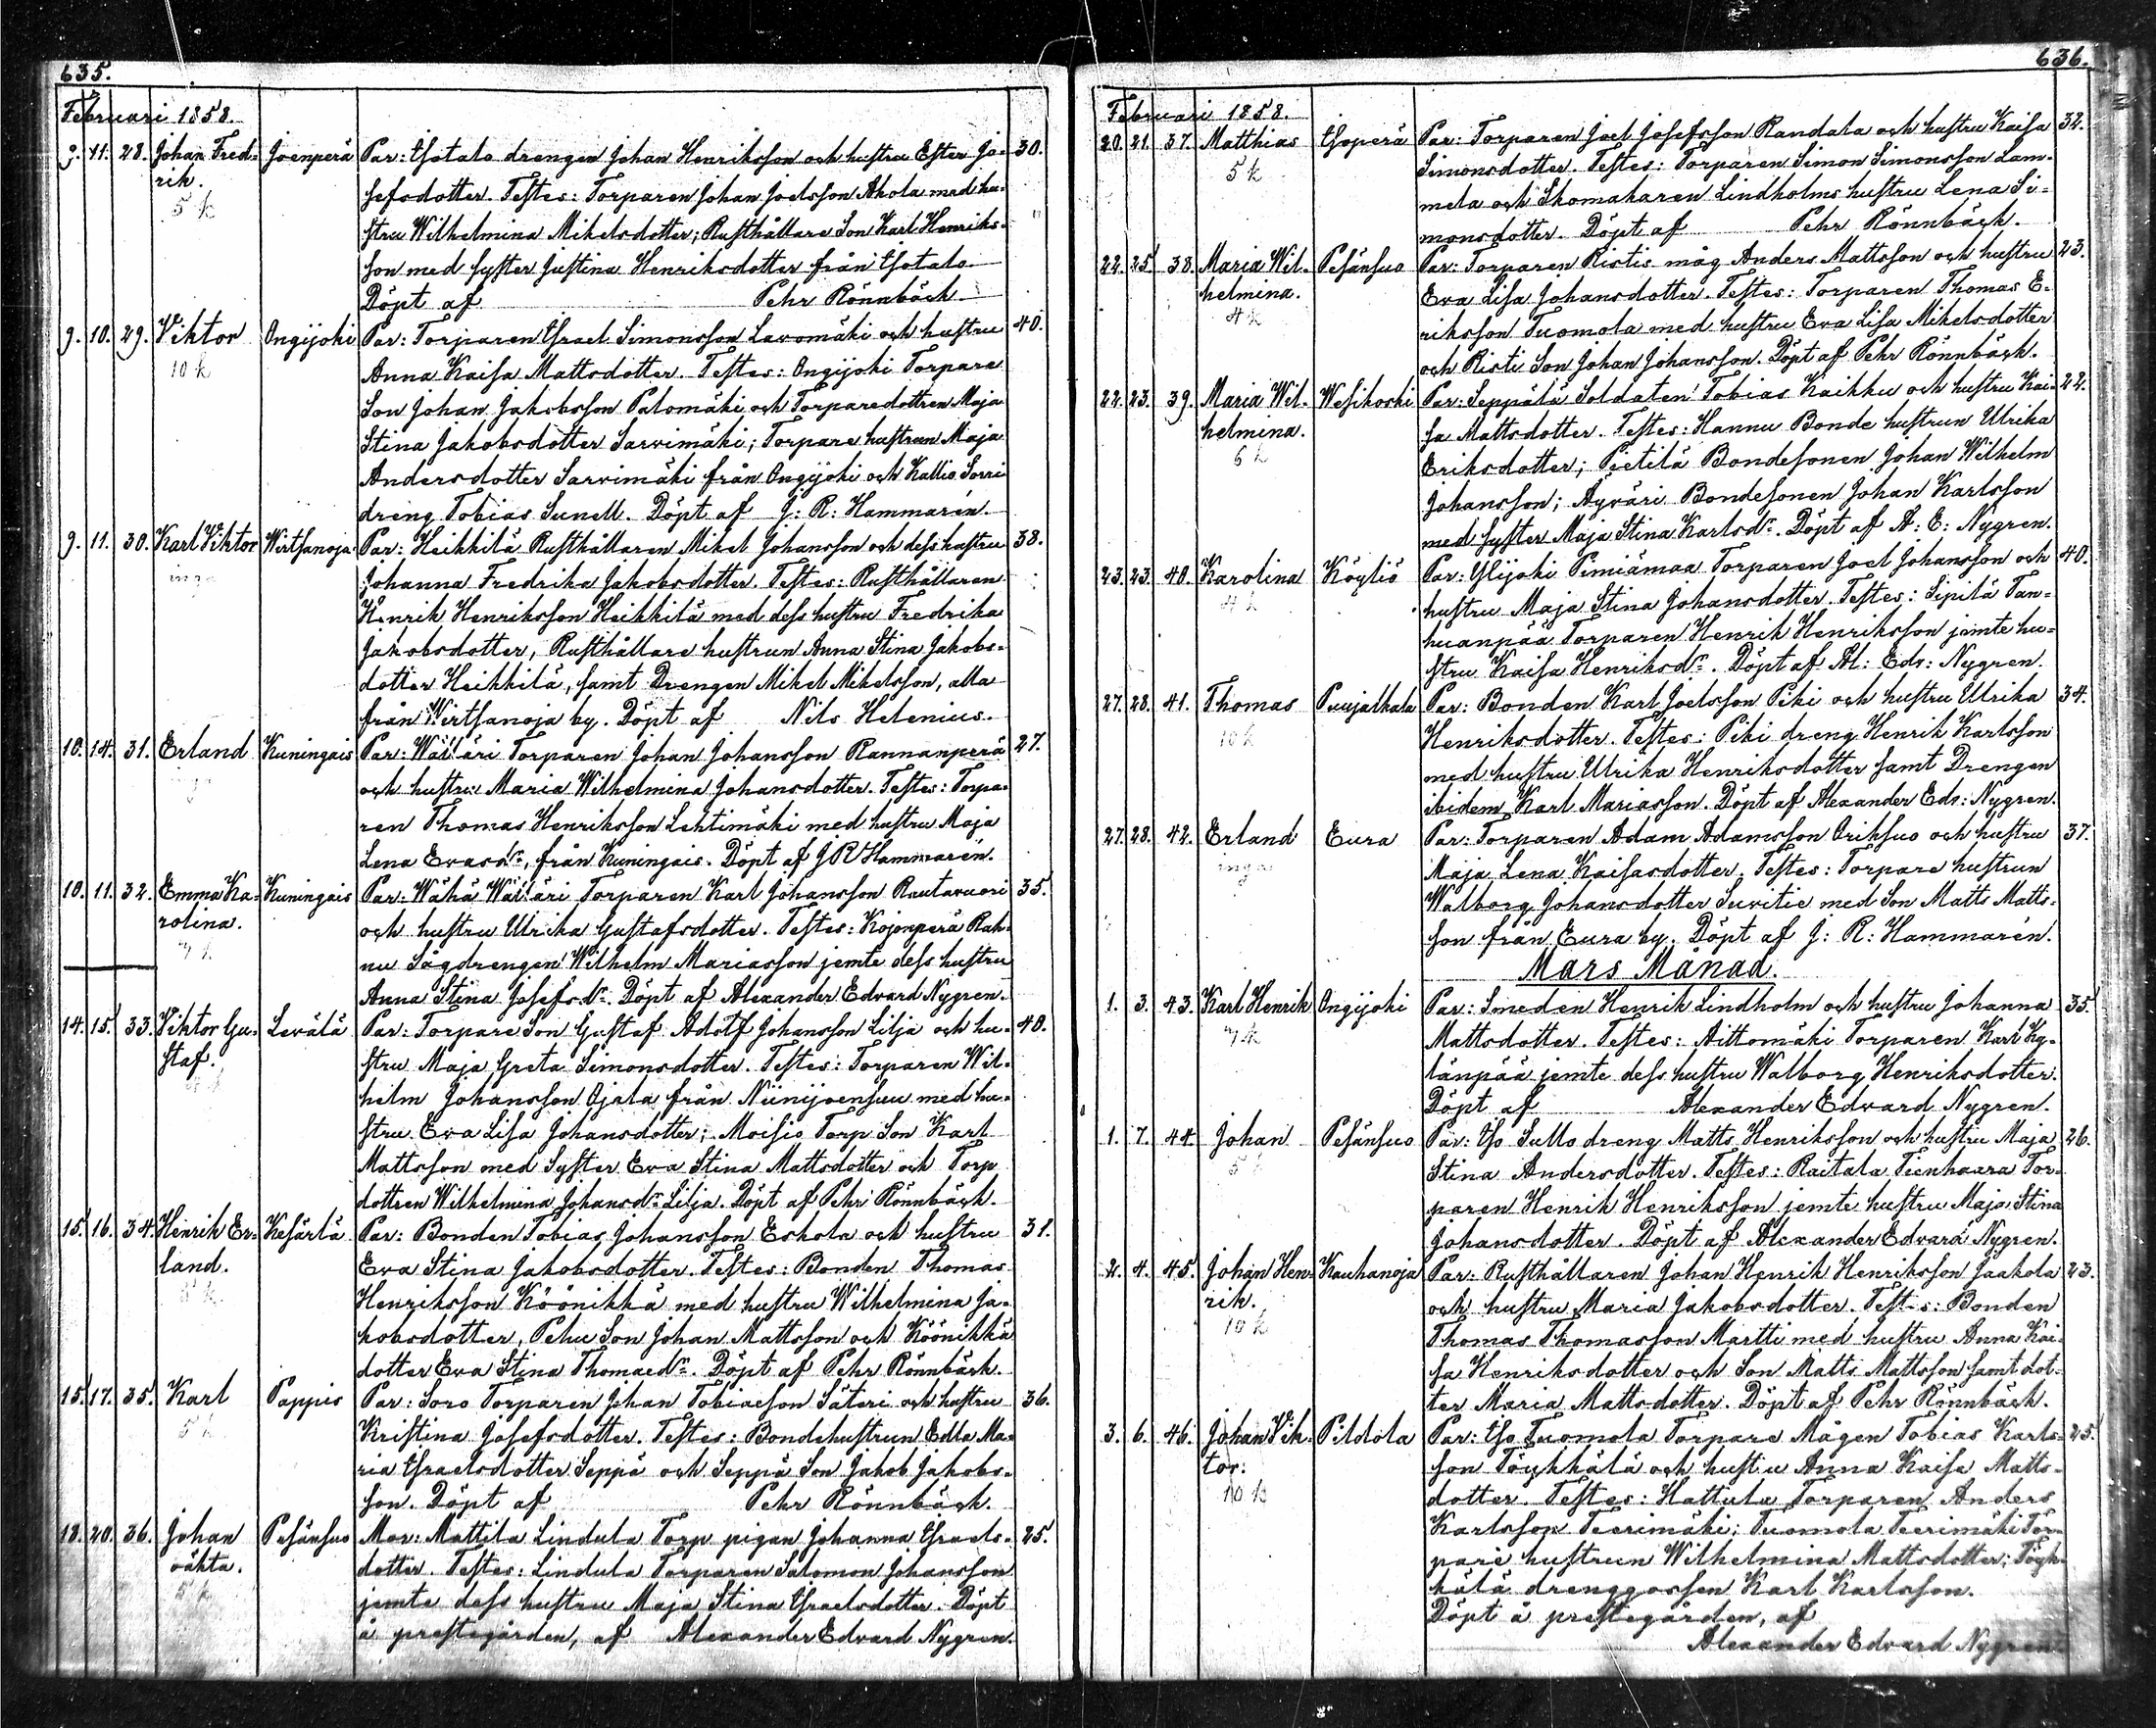 635.
Februari 1858.
9. 11. 28. Johan Fred- Joenperä Par: Isotalo drengen Johan Henriksson och hustru Ester Jo- 30.
rik. sefsdotter. Testes: Torparen Johan Joelsson Ahola med hu-
5 k stru Wilhelmina Mikelsdotter; Rusthållare Son Karl Henriks-
son med syster Justina Henriksdotter från Isotalo
Döpt af Pehr Rönnbäck
9. 10. 29. Viktor Ongijoki Par: Torparen Israel Simonsson Lavomäki och hustru 40.
10 k Anna Kaisa Mattsdotter. Testes: Ongijoki Torpare
Son Johan Jakobsson Palomäki och Torparedottren Maja
Stina Jakobsdotter Sarvimäki; Torpare hustrun Maja
Andersdotter Sarvimäki från Ongijoki och Kallio Sorri
dreng Tobias Sunell. Döpt af J: R: Hammarén.
9. 11. 30. Karl Viktor Wirtsanoja Par: Heikkilä Rusthållaren Mikel Johansson och dess hustru 38.
inga Johanna Fredrika Jakobsdotter. Testes: Rusthållaren
Henrik Henriksson Heikkilä med dess hustru Fredrika
Jakobsdotter, Rusthållare hustrun Anna Stina Jakobs-
dotter Heikkilä, samt Drengen Mikel Mikelsson, alla
från Wirtsanoja by. Döpt af Nils Helenius.
10. 14. 31. Erland Kuningais Par: Wälläri Torparen Johan Johansson Rannanperä 27.
och hustru Maria Wilhelmina Johansdotter. Testes: Torpa-
ren Thomas Henriksson Lehtimäki med hustru Maja
Lena Evasdr, från Kuningais. Döpt af J R Hammarén.
10. 11. 32. Emma Ka- Kuningais Par: Wähä Wälläri Torparen Karl Johansson Rautavuori 35.
rolina. och hustru Ulrika Gustafsdotter. Testes: Kojonperä Rah-
7 k nu Sågdrengen Wilhelm Mariasson jemte dess hustru
Anna Stina Josefsdr. Döpt af Alexander Edvard Nygren.
14. 15. 33. Viktor Gu- Levälä Par: Torpare Son Gustaf Adolf Johansson Lilja och hu- 40.
staf. stru Maja Greta Simonsdotter. Testes: Torparen Wil-
helm Johansson Ojala från Niinijoensuu med hu-
stru Eva Lisa Johansdotter; Moisio Torp Son Karl
Mattsson med Syster Eva Stina Mattsdotter och Torp
dottren Wilhelmina Johansdr Lilja. Döpt af Pehr Rönnbäck.
15. 16. 34. Henrik Er- Kesärlä Par: Bonden Tobias Johansson Eskola och hustru 31.
land. Eva Stina Jakobsdotter. Testes: Bonden Thomas
Henriksson Köönikkä med hustru Wilhelmina Ja-
kobsdotter, Pehu Son Johan Mattsson och Köönikkä
dotter Eva Stina Thomædr. Döpt af Pehr Rönnbäck.
15. 17. 35. Karl Pappis Par: Soro Torparen Johan Tobiasson Säteri och hustru 36.
5 k Kristina Josefsdotter. Testes: Bondehustrun Edla Ma-
ria Israelsdotter Seppä och Seppä Son Jakob Jakobs-
son. Döpt af Pehr Rönnbäck.
18. 20. 36. Johan Pesänsuo Mor: Mattila Lindula Torp pigan Johanna Israels- 25.
oäkta. dotter. Testes: Lindula Torparen Salomon Johansson
5 k jemte dess hustru Maja Stina Israelsdotter. Döpt
å prestegården, af Alexander Edvard Nygren.
636.
Februari 1858.
20. 21. 37. Matthias Isoperä Par: Torparen Joel Josefsson Randala och hustru Kaisa 32.
5 k Simonsdotter. Testes: Torparen Simon Simonsson Lam-
mela och Skomakaren Lindholms hustru Lena Si-
monsdotter. Döpt af Pehr Rönnbäck.
22. 25. 38. Maria Wil- Pesänsuo Par: Torparen Ristis måg Anders Mattsson och hustru 23.
helmina. Eva Lisa Johansdotter. Testes: Torparen Thomas E-
4 k riksson Tuomola med hustru Eva Lisa Mikelsdotter
och Risti Son Johan Johansson. Döpt af Pehr Rönnbäck.
22. 23. 39. Maria Wil- Wesikoski Par: Seppälä Soldaten Tobias Kaikku och hustru Kai- 22.
helmina. sa Mattsdotter. Testes: Hannu Bonde hustrun Ulrika
6 k Eriksdotter; Pietilä Bondesonen Johan Wilhelm
Johansson; Äyväri Bondesonen Johan Karlsson
med syster Maja Stina Karlsdr. Döpt af A: E: Nygren.
23. 23. 40. Karolina Köyliö Par: Ylijoki Pimiämaa Torparen Joel Johansson och 40.
4 k hustru Maja Stina Johansdotter. Testes: Sipilä Tan-
huanpää Torparen Henrik Henriksson jemte hu-
stru Kaisa Henriksdr. Döpt af Al: Edv: Nygren.
27. 28. 41. Thomas Puujalkala Par: Bonden Karl Joelsson Piki och hustru Ulrika 34.
10 k Henriksdotter. Testes: Piki dreng Henrik Karlsson
med hustru Ulrika Henriksdotter samt Drengen
ibidem Karl Mariasson. Döpt af Alexander Edv: Nygren.
27. 28. 42. Erland Eura Par: Torparen Adam Adamsson Orihsuo och hustru 37.
inga Maja Lena Kaisasdotter. Testes: Torpare hustrun
Walborg Johansdotter Suvitie med Son Matts Matts-
son från Eura by. Döpt af J: R: Hammarén.
Mars Månad.
1. 3. 43. Karl Henrik Ongijoki Par: Smeden Henrik Lindholm och hustru Johanna 35.
7 k Mattsdotter. Testes: Aittomäki Torparen Karl Ky-
länpää jemte dess hustru Walborg Henriksdotter.
Döpt af Alexander Edvard Nygren.
1. 7. 44. Johan Pesänsuo Par: Iso Sullo dreng Matts Henriksson och hustru Maja 26.
5 k Stina Andersdotter. Testes: Raitala Tienhaara Tor-
paren Henrik Henriksson jemte hustru Maja Stina
Johansdotter. Döpt af Alexander Edvard Nygren.
2. 4. 45. Johan Hen- Kauhanoja Par: Rusthållaren Johan Henrik Henriksson Jaakola 23.
rik. och hustru Maria Jakobsdotter. Testes: Bonden
10 k Thomas Thomasson Martti med hustru Anna Kai-
sa Henriksdotter och Son Matts Mattsson samt dot-
ter Maria Mattsdotter. Döpt af Pehr Rönnbäck.
3. 6. 46. Johan Vik- Pildola Par: Iso Tuomola Torpare Mågen Tobias Karls- 25.
tor. son Töykkälä och hustru Anna Kaisa Matts-
10 k dotter. Testes: Hattula Torparen Anders
Karlsson Teerimäki; Tuomola Teerimäki Tor-
pare hustrun Wilhelmina Mattsdotter; Töyk-
kälä drenggossen Karl Karlsson.
Döpt å prestegården, af
Alexander Edvard Nygren.